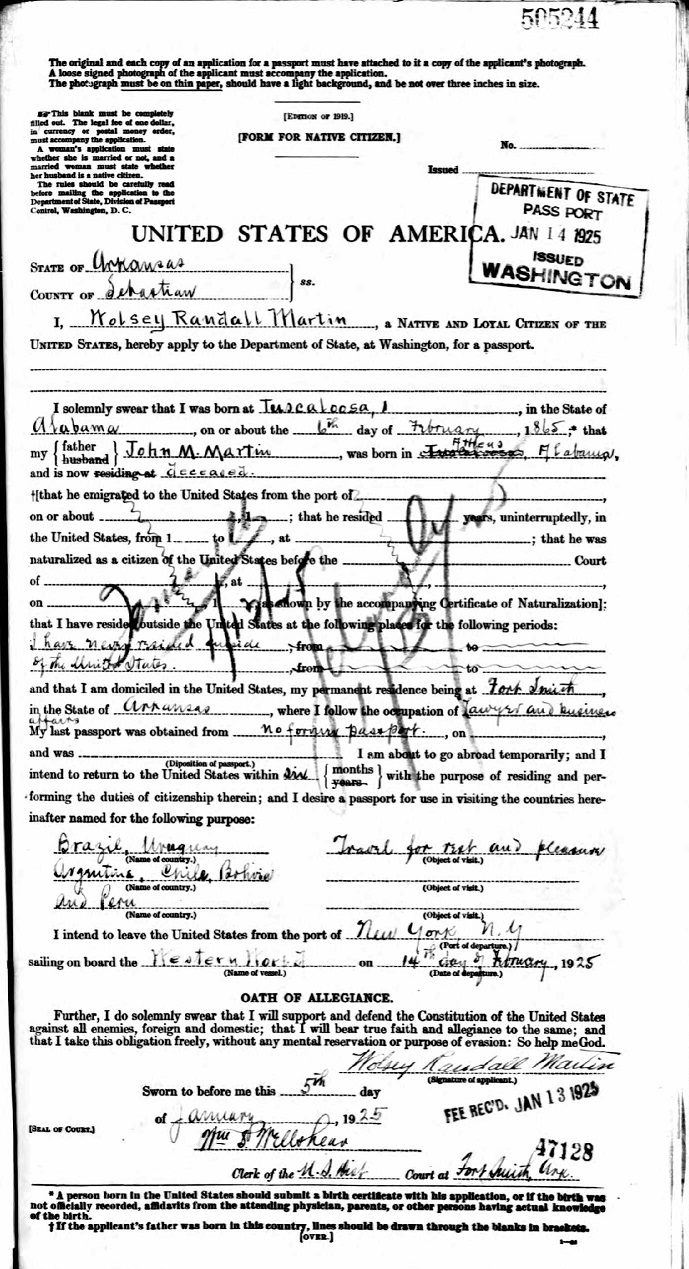 505244
The original and each copy of an application for a passport must have attached to it a copy of the applicant's photograph.
A loose signed photograph of the applicant must accompany the application.
The photograph must be on thin paper, should have a light background, and be not over three inches in size.
This blank must be completely
filled out. The legal fee of one dollar,
in currency or postal money order,
must accompany the application.
A woman's application must state
whether she is married or not, and a
married woman must state whether
her husband is a native citizen.
The rules should be carefully read
before mailing the application to the
Department of State, Division of Passport
Control, Washington, D. C.
[EDITION OF 1919.]
[FORM FOR NATIVE CITIZEN.]
No.
Issued
DEPARTMENT OF STATE
PASSPORT
JAN 14 1925
ISSUED
WASHINGTON
UNITED STATES OF AMERICA.
STATE OF Arkansas
COUNTY OF Sebastian
ss.
I, Wolsey Randall Martin, a NATIVE AND LOYAL CITIZEN OF THE
UNITED STATES, hereby apply to the Department of State, at Washington, for a passport.
I solemnly swear that I was born at Tuscaloosa, in the State of
Alabama, on or about the 6th day of February, 1865,* that
my {father husband} John M. Martin, was born in Athens Tuscaloosa, Alabama,
and is now residing at deceased.
†[that he emigrated to the United States from the port of
on or about , 1 ; that he resided years, uninterruptedly, in
the United States, from 1 to 1 , at ; that he was
naturalized as a citizen of the United States before the Court
of , at ,
on , 1 , as shown by the accompanying Certificate of Naturalization];
that I have resided outside the United States at the following places for the following periods:
I have never resided outside , from to
of the United States. , from to
and that I am domiciled in the United States, my permanent residence being at Fort Smith,
in the State of Arkansas, where I follow the occupation of Lawyer and business
affairs
My last passport was obtained from No former passport., on
and was I am about to go abroad temporarily; and I
(Diposition of passport.)
intend to return to the United States within six {months years} with the purpose of residing and per-
forming the duties of citizenship therein; and I desire a passport for use in visiting the countries here-
inafter named for the following purpose:
Brazil, Uruguay Travel for rest and pleasure
(Name of country.) (Object of visit.)
Argentina, Chile, Bolivia
(Name of country.) (Object of visit.)
and Peru
(Name of country.) (Object of visit.)
I intend to leave the United States from the port of New York, N.Y
(Port of departure.)
sailing on board the Western World on 14th day of February, 1925
(Name of vessel.) (Date of departure.)
OATH OF ALLEGIANCE.
Further, I do solemnly swear that I will support and defend the Constitution of the United States
against all enemies, foreign and domestic; that I will bear true faith and allegiance to the same; and
that I take this obligation freely, without any mental reservation or purpose of evasion: So help me God.
Wolsey Randall Martin
(Signature of applicant.)
Sworn to before me this 5th day
FEE REC'D. JAN 13 1925
of January, 1925
[SEAL OF COURT.]
47128
Clerk of the U.S. Dist Court at Fort Smith, Ark.
* A person born in the United States should submit a birth certificate with his application, or if the birth was
not officially recorded, affidavits from the attending physician, parents, or other persons having actual knowledge
of the birth.
† If the applicant's father was born in this country, lines should be drawn through the blanks in brackets.
[OVER.]